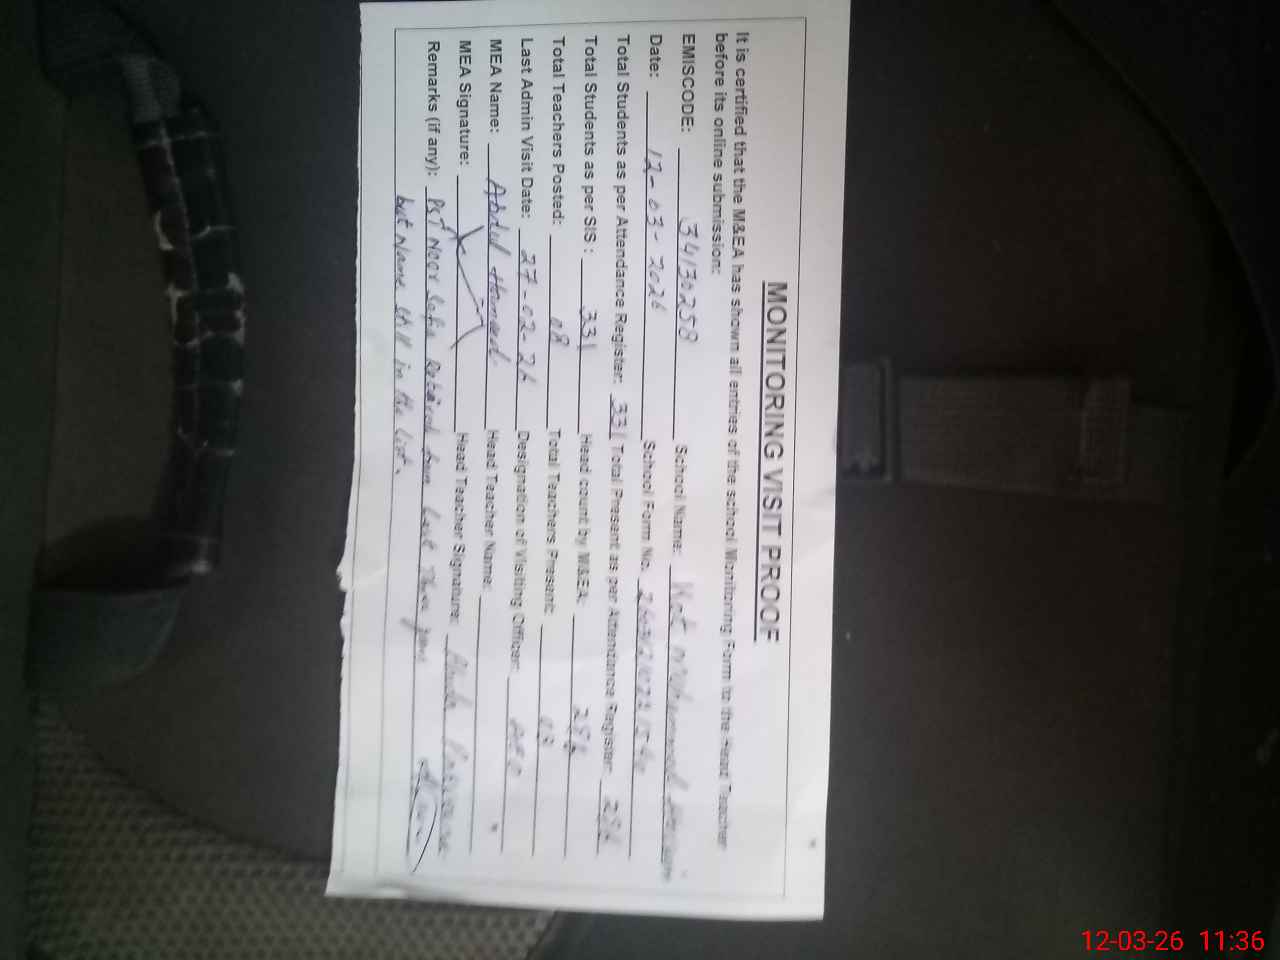 MONITORING VISIT PROOF
It is certified that the M&EA has shown all entries of the school Monitoring Form to the Head Teacher
before its online submission:
EMISCODE: 34130258 School Name: Kot Muhammad
Date: 12-03-2026 School Form No.
Total Students as per Attendance Register: 331 Total Present as per Attendance Register: 296
Total Students as per SIS : 331 Head count by M&EA: 296
Total Teachers Posted: 08 Total Teachers Present: 08
Last Admin Visit Date: 27-02-26 Designation of Visiting Officer: AEO
MEA Name: Abdul Hameed Head Teacher Name:
MEA Signature: Head Teacher Signature:
Remarks (if any): PST Noor from last three years
but Name still in the list.
12-03-26 11:36